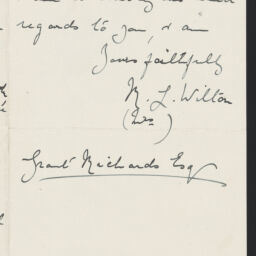 regards to you, & am
Yours faithfully
M. L. Wilton
(Mrs)
Grant Richards Esq